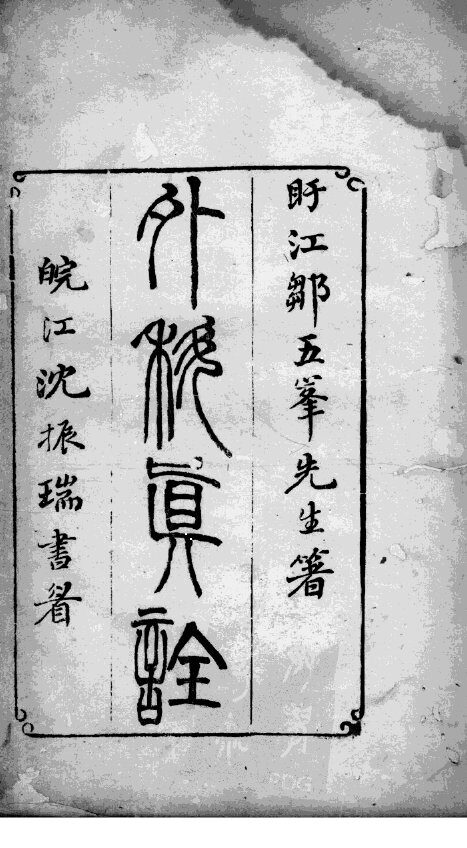 盱江鄒五峯先生箸
外科真詮
皖江沈振瑞書眷